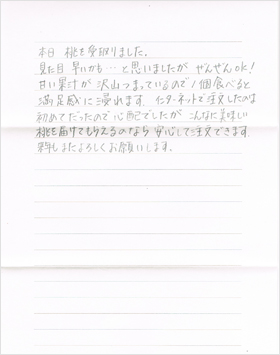 本日 桃を受取りました。
見た目 早いかも…と思いましたが ぜんぜんOK!
甘い果汁が 沢山つまっているので 1個食べると
満足感に浸れます。インターネットで注文したのは
初めてだったので心配でしたが こんなに美味しい
桃を届けてもらえるのなら 安心して注文できます。
来年もまたよろしくお願いします。